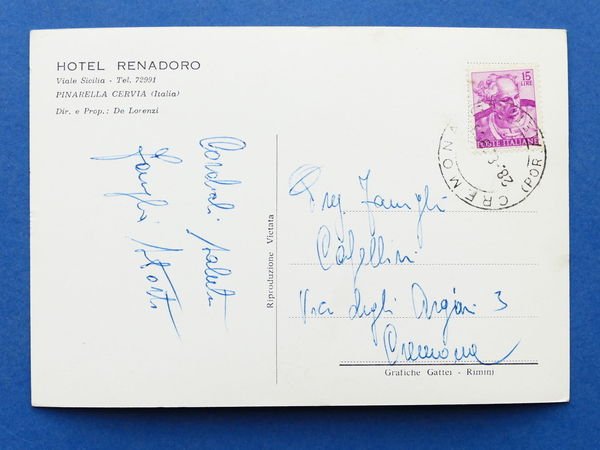 HOTEL RENADORO
Viale Sicilia - Tel. 72991
PINARELLA CERVIA (Italia)
Dir. e Prop.: De Lorenzi
Cordiali saluti
Riproduzione Vietata
15
LIRE
POSTE ITALIANE
CREMONA
28-8
Preg. Famiglia
Via degli 3
Cremona
Grafiche Gattei - Rimini